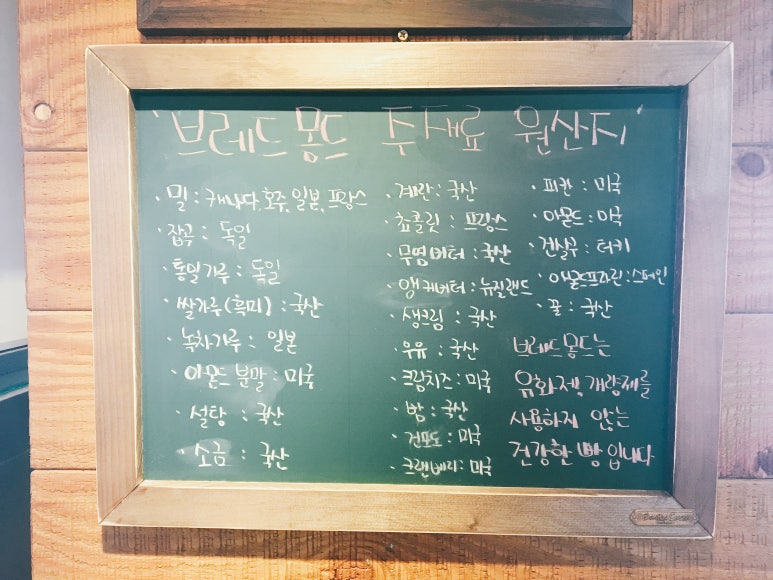 '브레드 몽드 주재료 원산지'
· 밀 : 캐나다, 호주, 일본, 프랑스
· 잡곡 : 독일
· 통밀가루 : 독일
· 쌀가루(흑미) : 국산
· 녹차가루 : 일본
· 아몬드 분말 : 미국
· 설탕 : 국산
· 소금 : 국산
· 계란 : 국산
· 쵸콜릿 : 프랑스
· 무염버터 : 국산
· 앵커버터 : 뉴질랜드
· 생크림 : 국산
· 우유 : 국산
· 크림치즈 : 미국
· 밤 : 국산
· 건포도 : 미국
· 크랜베리 : 미국
· 피칸 : 미국
· 아몬드 : 미국
· 건살구 : 터키
· 아몬드프라린 : 스페인
· 꿀 : 국산
브레드 몽드는
유화제, 개량제를
사용하지 않는
건강한 빵 입니다